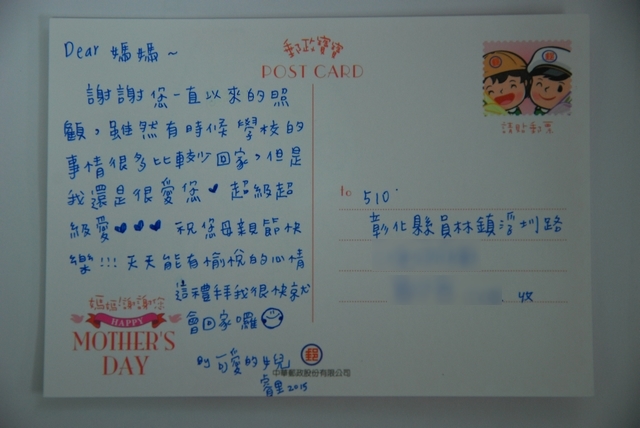 Dear 媽媽~
謝謝您一直以來的照
顧，雖然有時候學校的
事情很多比較少回家，但是
我還是很愛您♥ 超級超
級愛♥♥♥ 祝您母親節快
樂!!! 天天能有愉悅的心情
這禮拜我很快就
會回家囉
by 可愛的女兒
2015
媽媽!謝謝你
HAPPY
MOTHER'S
DAY
郵政寶寶
POST CARD
請貼郵票
to 510
彰化縣員林鎮浮圳路
收
郵
中華郵政股份有限公司